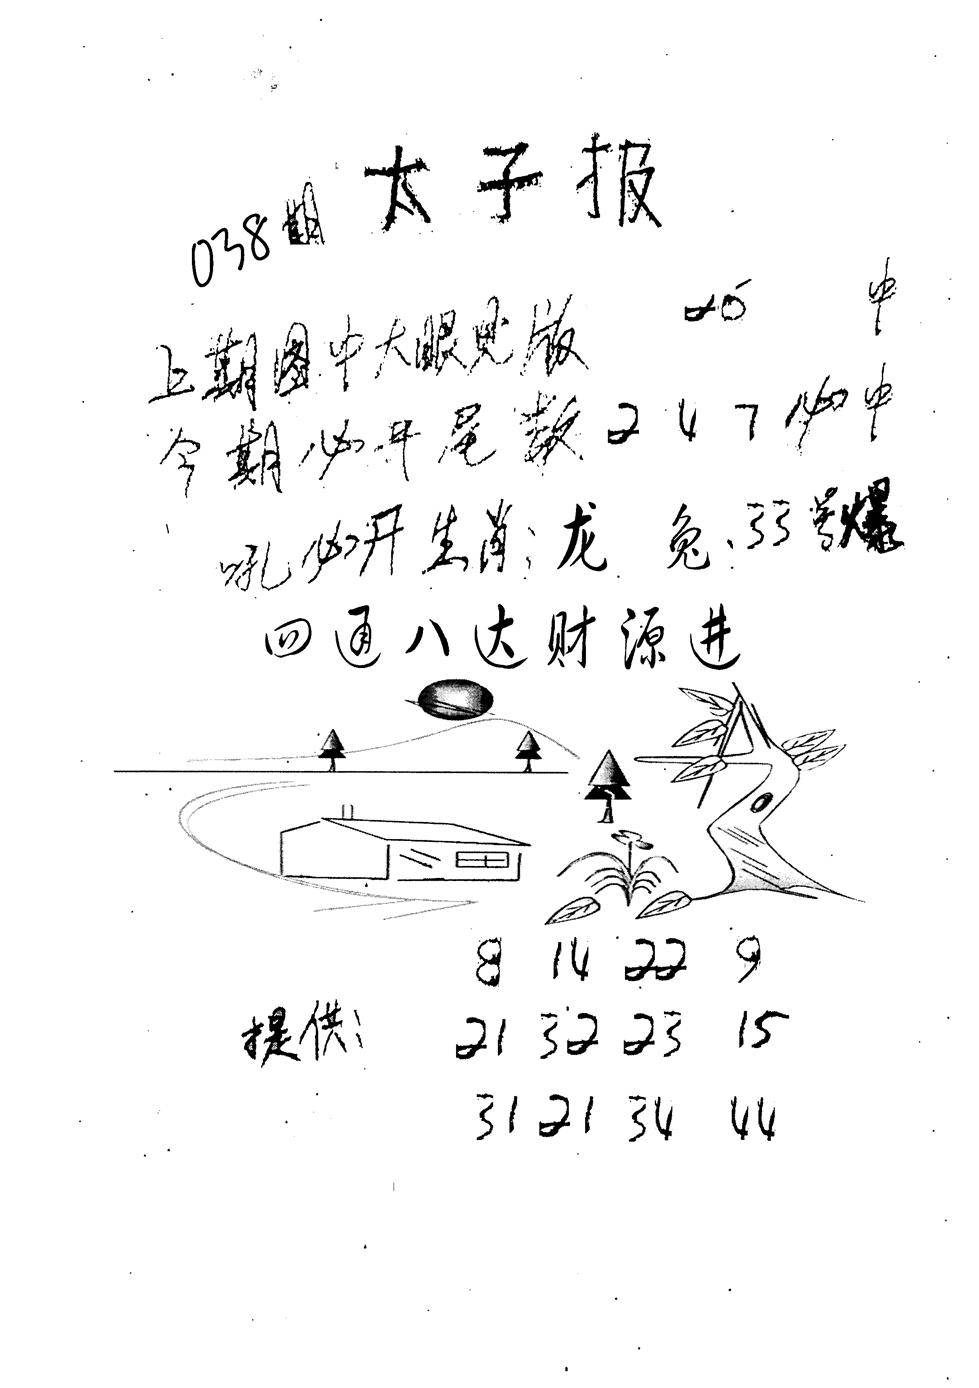 太子报
038期
上期图中大眼见版 25 中
今期必开尾数 2 4 7 必中
吼必开生肖：龙 兔、33号爆
四通八达财源进
8 14 22 9
提供： 21 32 23 15
31 21 34 44